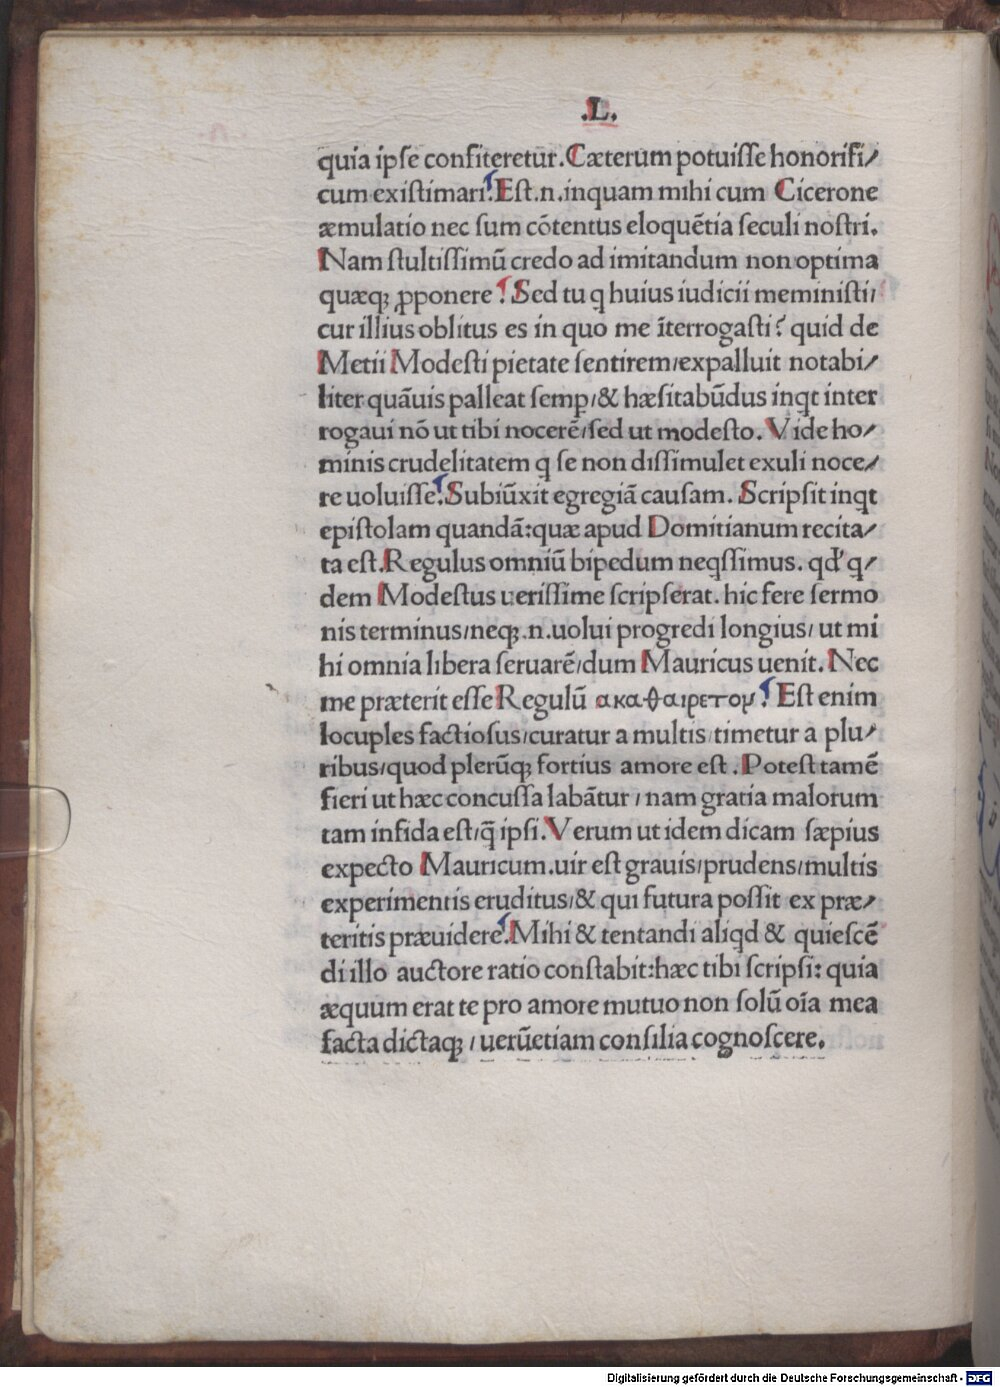 .L.
quia ipse confiteretur. Cæterum potuisse honorifi/
cum existimari. Est.n.inquam mihi cum Cicerone
æmulatio nec sum cõtentus eloquẽtia seculi nostri.
Nam stultissimũ credo ad imitandum non optima
quæqꝫ ꝓponere. Sed tu q huius iudicii meministi/
cur illius oblitus es in quo me ĩterrogasti? quid de
Metii Modesti pietate sentirem/expalluit notabi/
liter quãuis palleat semꝑ/& hæsitabũdus inqt inter
rogaui nõ ut tibi nocerẽ/sed ut modesto. Vide ho/
minis crudelitatem q se non dissimulet exuli noce/
re uoluisse. Subiũxit egregiã causam. Scripsit inqt
epistolam quandã:quæ apud Domitianum recita/
ta est. Regulus omniũ bipedum neqssimus. qd' q/
dem Modestus uerissime scripserat. hic fere sermo
nis terminus/neqꝫ.n.uolui progredi longius/ut mi
hi omnia libera seruarẽ/dum Mauricus uenit. Nec
me præterit esse Regulũ ακαθαιρετομ. Est enim
locuples factiosus/curatur a multis/timetur a plu/
ribus/quod plerũqꝫ fortius amore est. Potest tamẽ
fieri ut hæc concussa labãtur/nam gratia malorum
tam infida est/q̃ ipsi. Verum ut idem dicam sæpius
expecto Mauricum.uir est grauis/prudens/multis
experimentis eruditus/& qui futura possit ex præ/
teritis præuidere. Mihi & tentandi aliqd & quiescẽ
di illo auctore ratio constabit:hæc tibi scripsi: quia
æquum erat te pro amore mutuo non solũ oĩa mea
facta dictaqꝫ/uerũetiam consilia cognoscere.
Digitalisierung gefördert durch die Deutsche Forschungsgemeinschaft - DFG